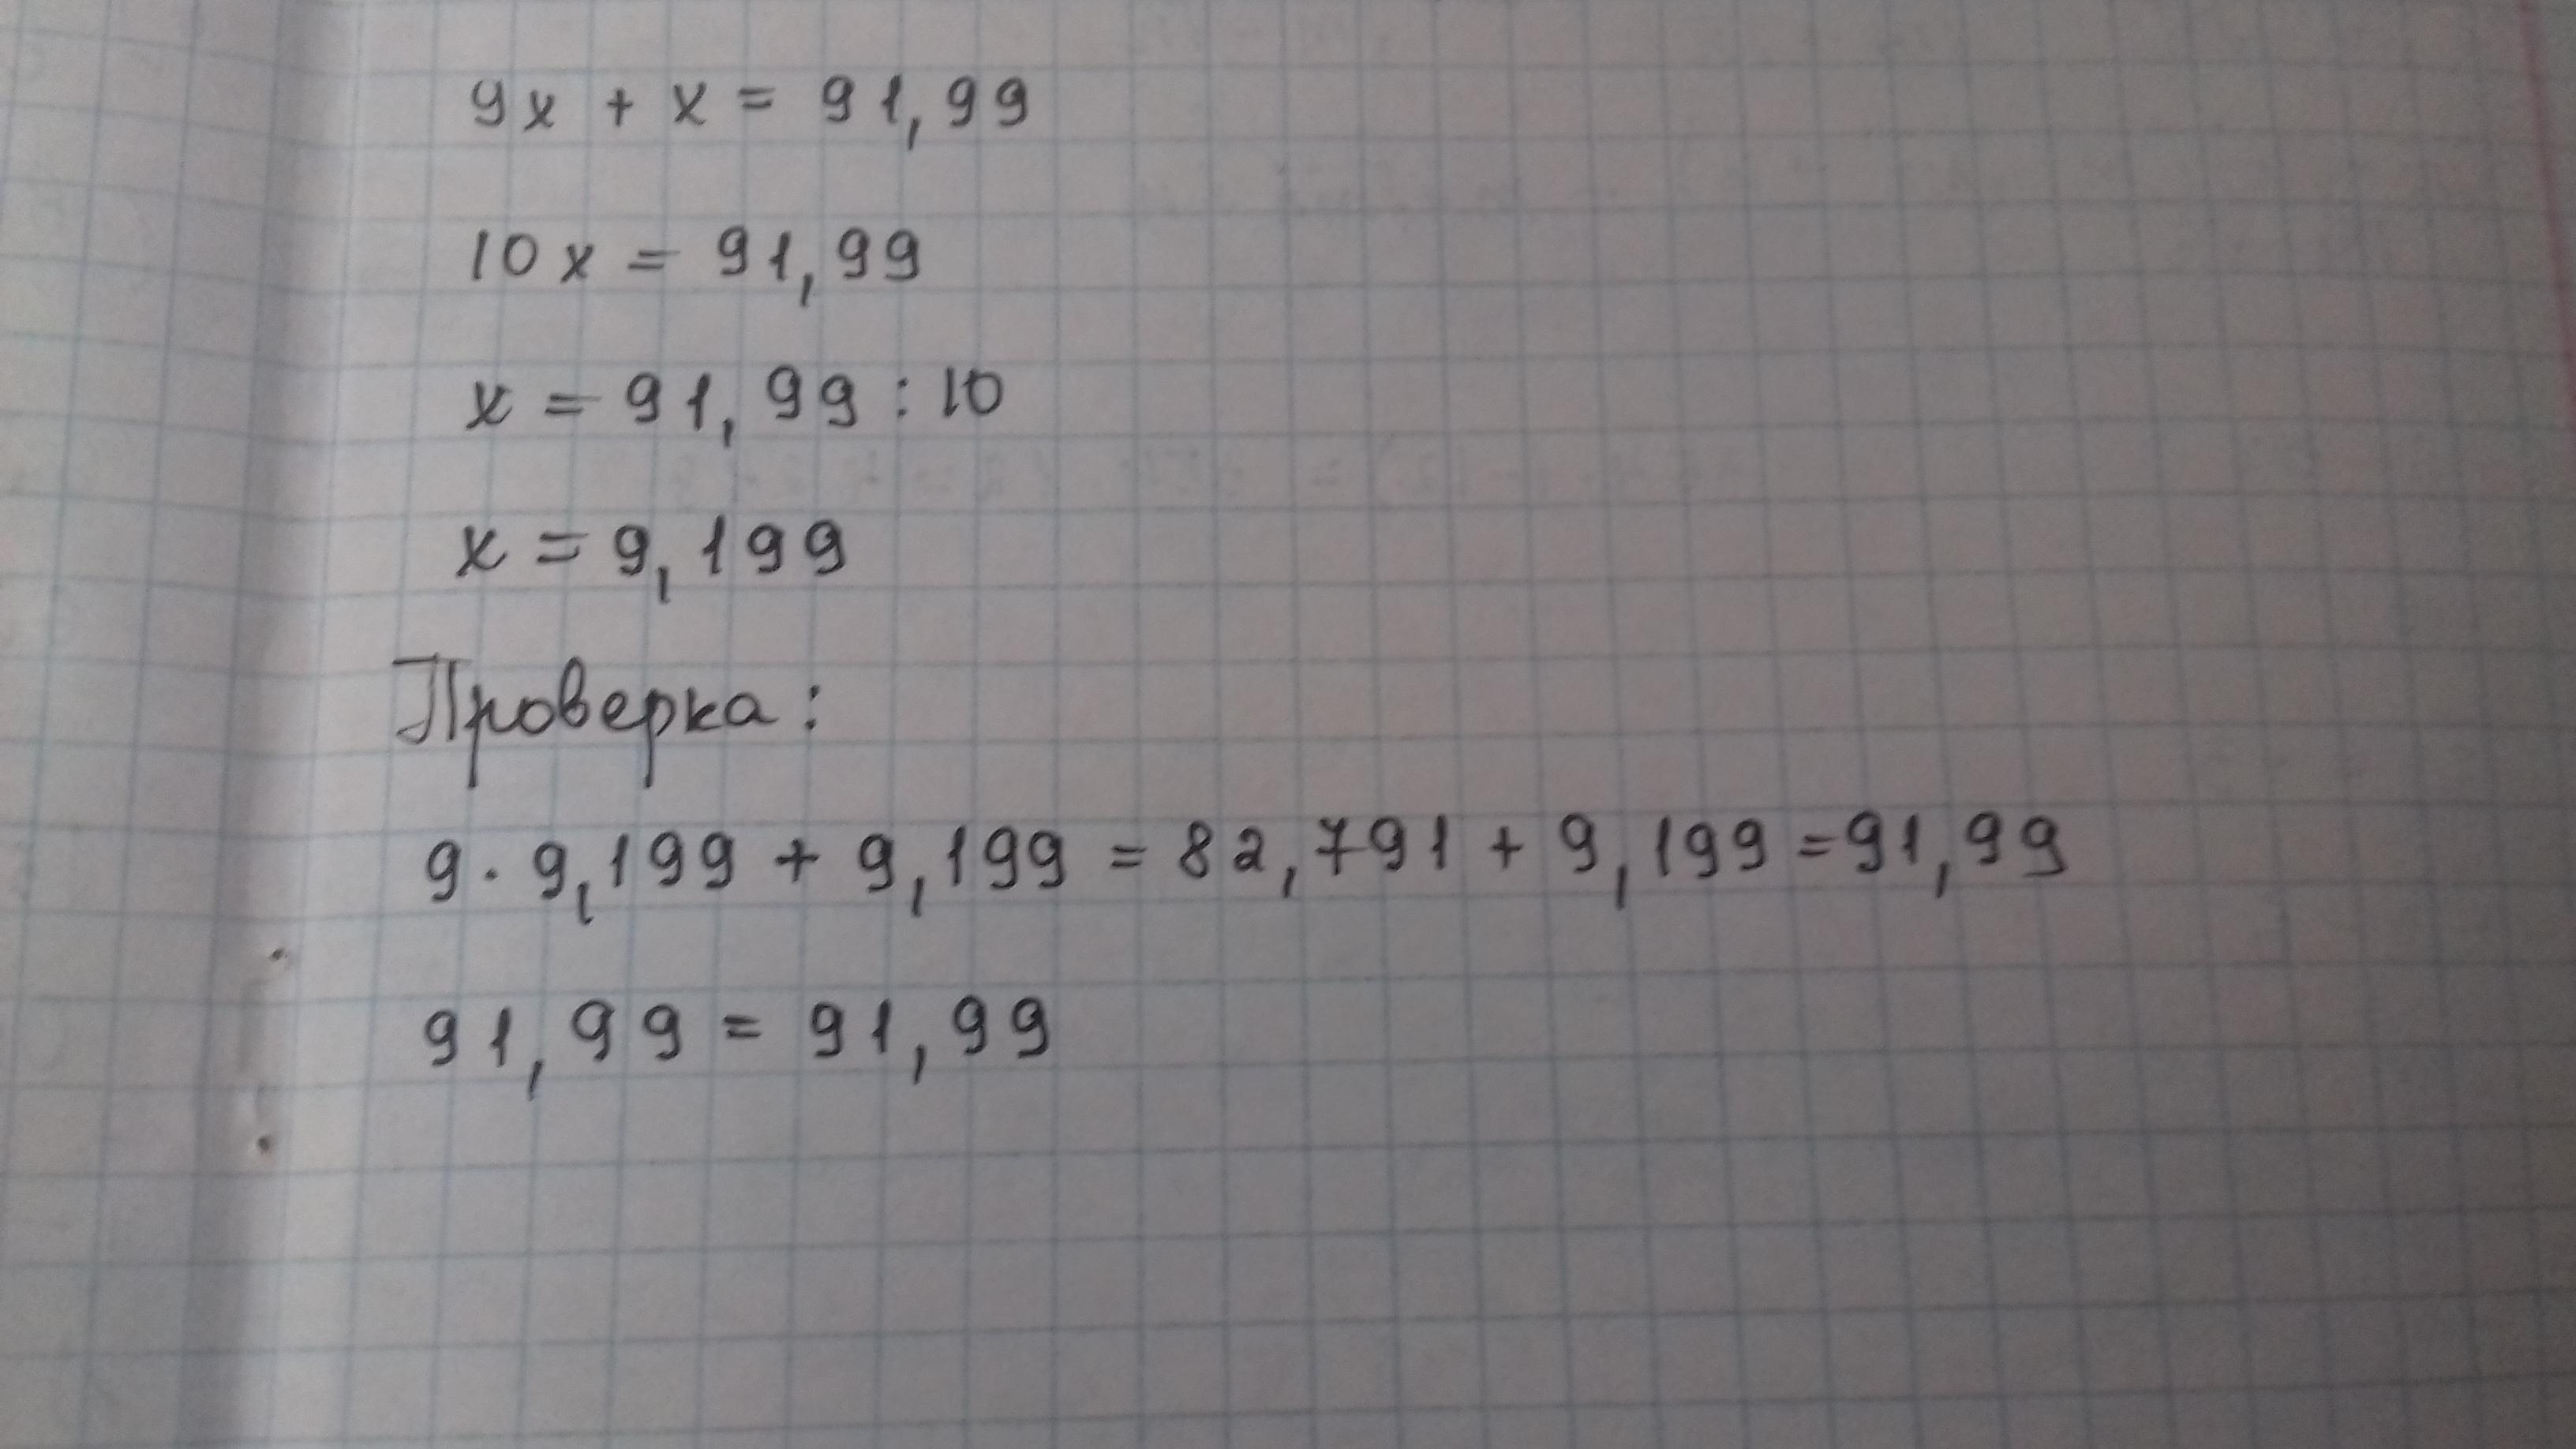 9x + x = 91,99
10x = 91,99
x = 91,99 : 10
x = 9,199
Проверка:
9 · 9,199 + 9,199 = 82,791 + 9,199 = 91,99
91,99 = 91,99